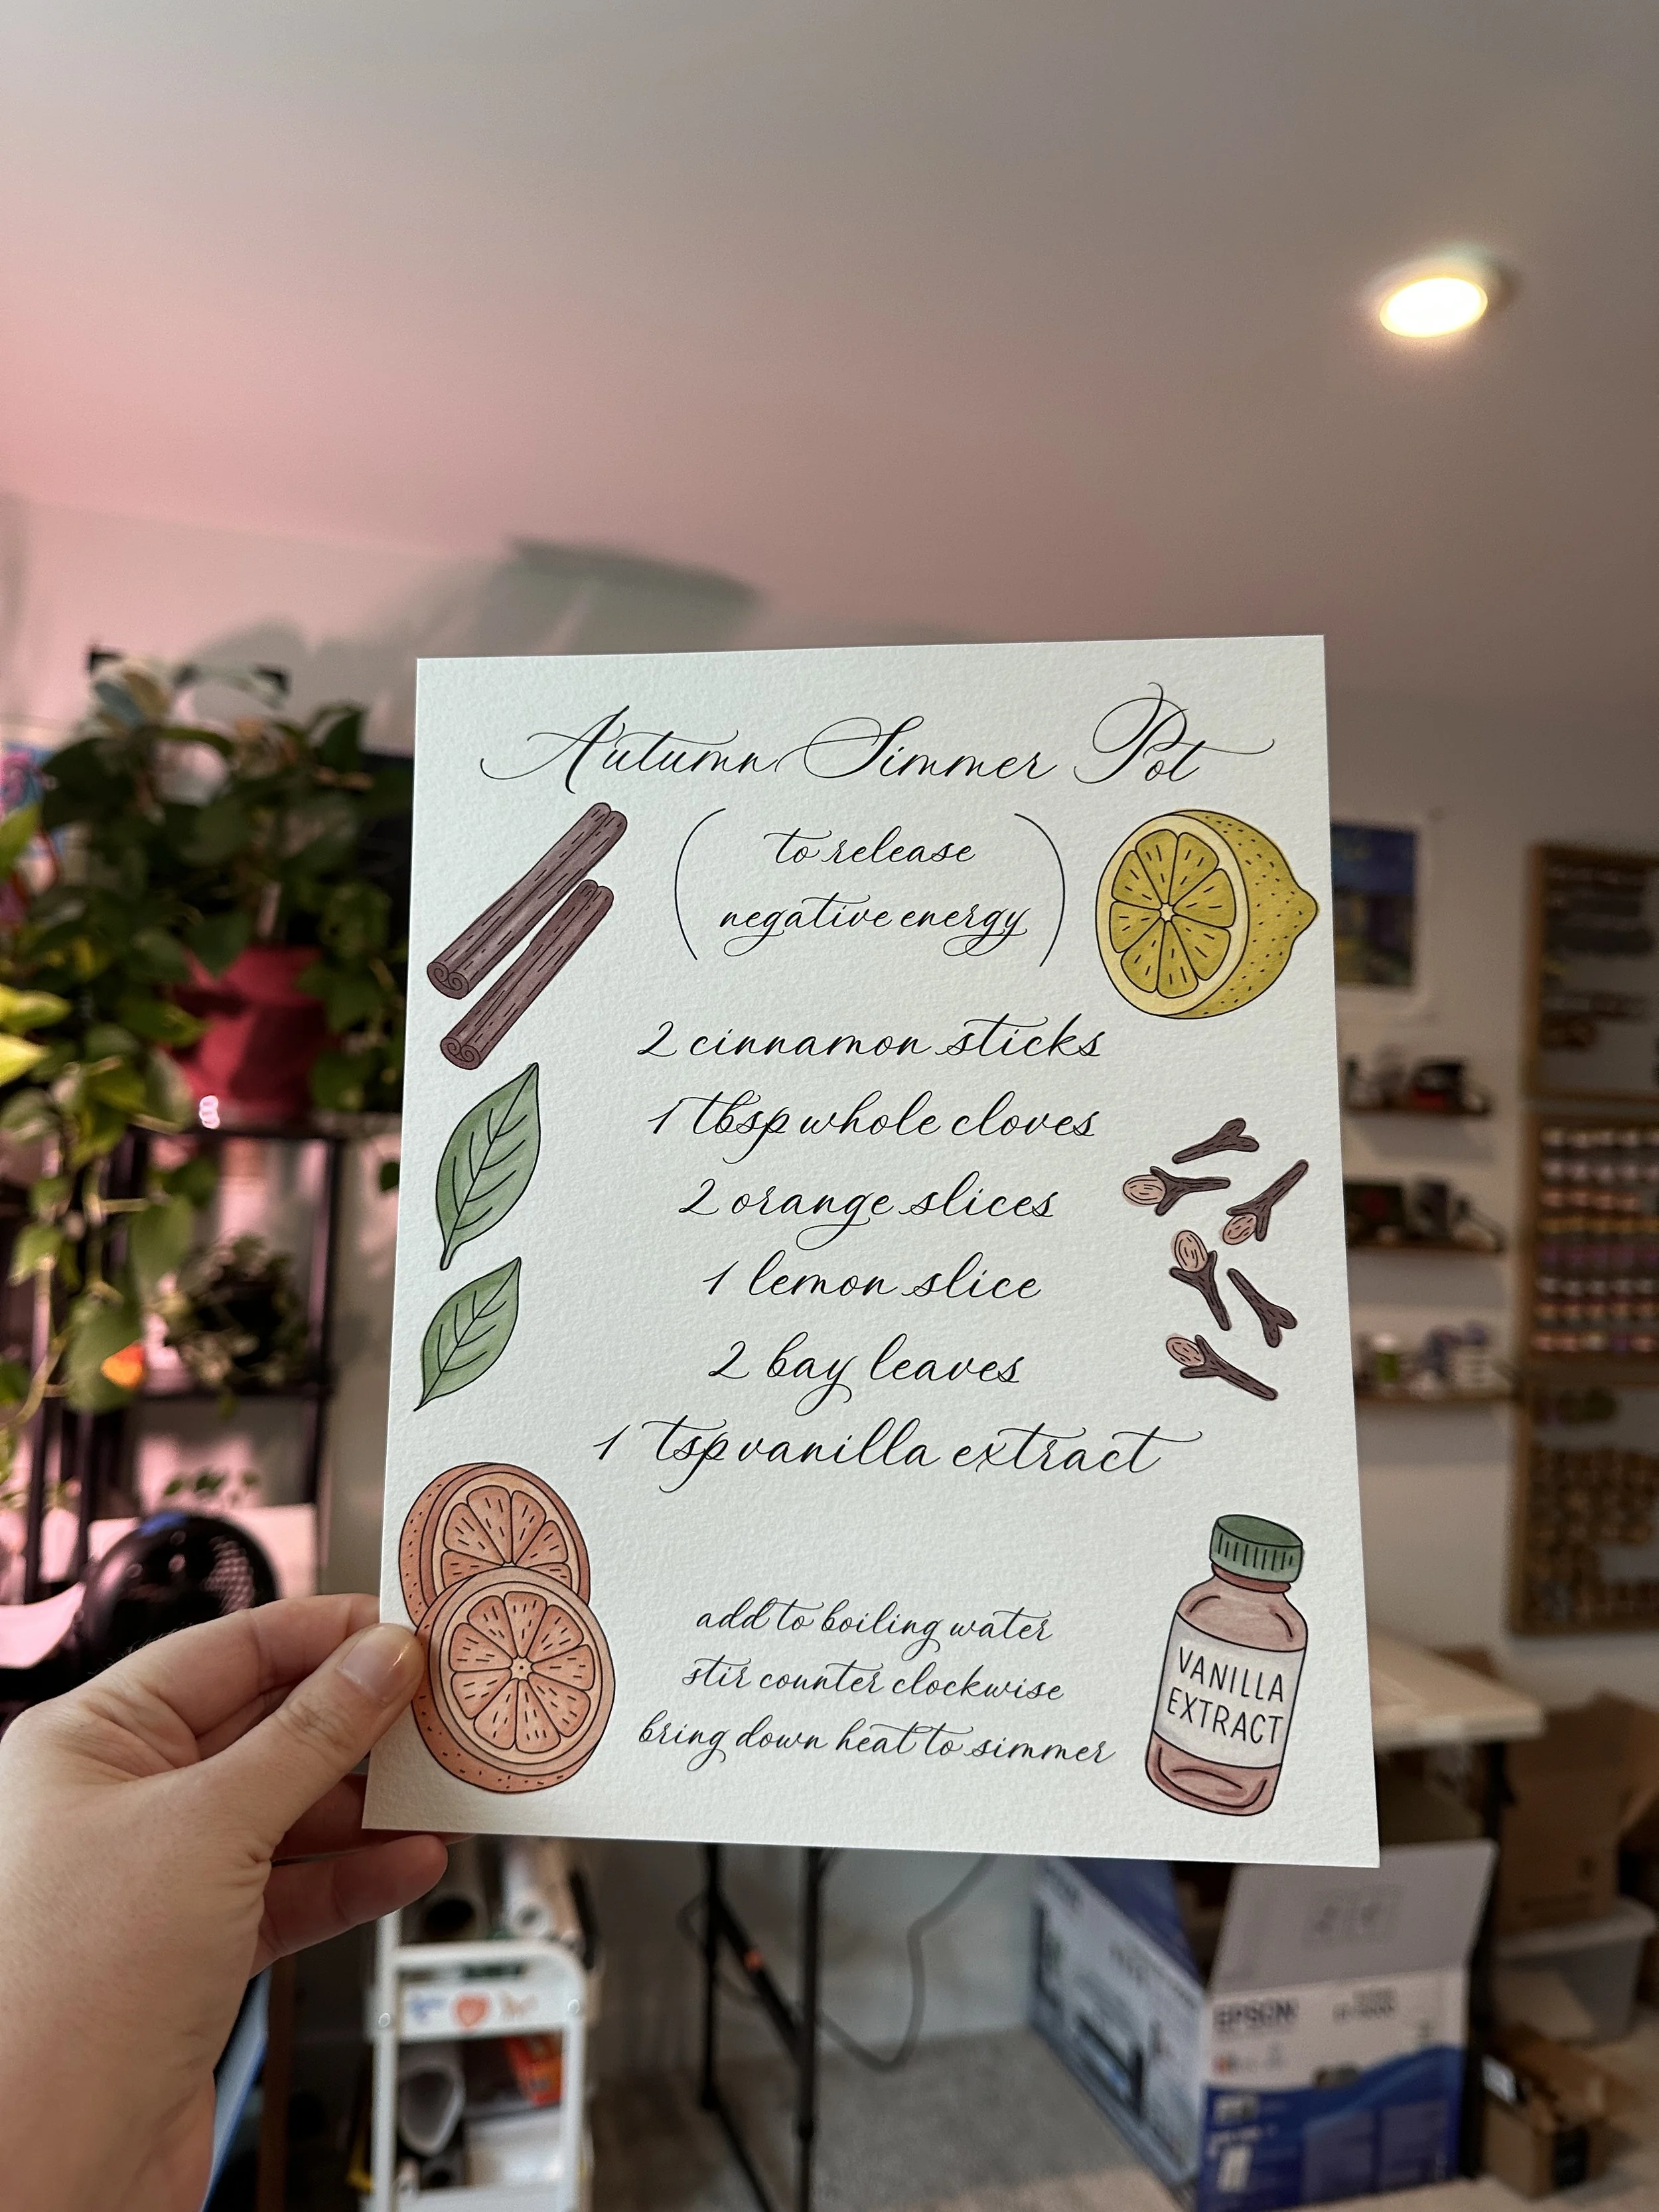 Autumn Simmer Pot
(to release
negative energy)
2 cinnamon sticks
1 tbsp whole cloves
2 orange slices
1 lemon slice
2 bay leaves
1 tsp vanilla extract
add to boiling water
stir counter clockwise
bring down heat to simmer
VANILLA
EXTRACT
EPSON